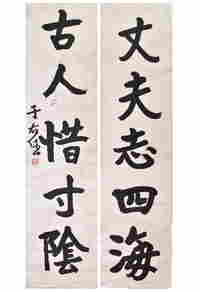 丈夫志四海
古人惜寸陰
于右任